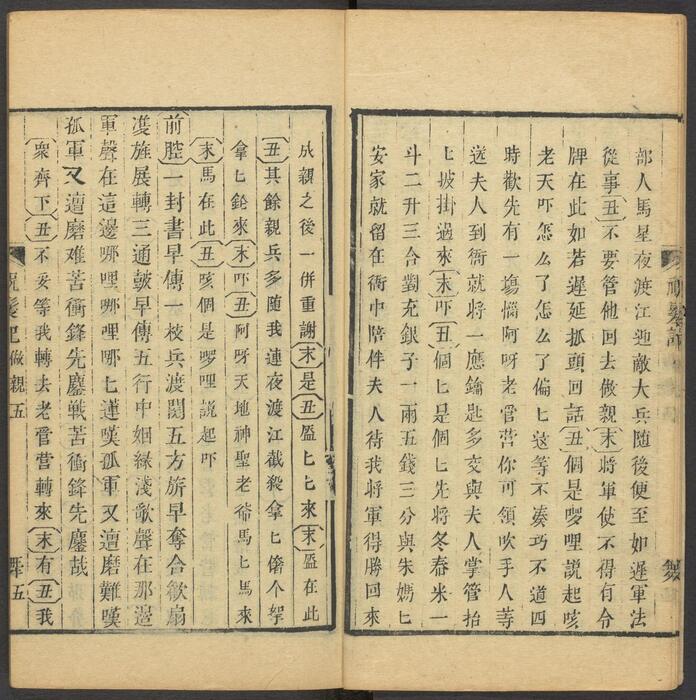 部人馬星夜渡江迎敵大兵隨後便至如遲軍法
從事丑不要管他回去做親末將軍使不得有令
牌在此如若遲延抓頭回話丑個是啰哩説起咳
老天吓怎么了怎么了偏匕这等不凑巧不道四
時歡先有一塲惱阿呀老管营你可領吹手人等
送夫人到衙就將一應鑰匙多交與夫人掌管抬
匕披掛過來末吓丑個匕是個匕先將冬舂米一
斗二升三合對充銀子一兩五錢三分與朱媽匕
安家就留在衙中陪伴夫人待我將軍得勝回來
成親之後一併重謝末是丑盔匕匕來末盔在此
丑其餘親兵多隨我連夜渡江截殺拿匕
拿匕鎗來末吓丑阿呀天地神聖老爺馬匕馬來
末馬在此丑咳個是啰哩説起吓
前腔一封書早傳一枝兵渡關五方旂早奪合歡扇
旌展轉三通皷早傳五行中姻緣淺歡聲在那邉
軍聲在這邊哪哩哪哩哪匕蓮嘆孤軍又遭磨難嘆
孤軍又遭磨难苦衝鋒先鏖戦苦衝鋒先鏖哉
衆齊下丑不妥等我轉去老管营轉來末有丑我
做親五